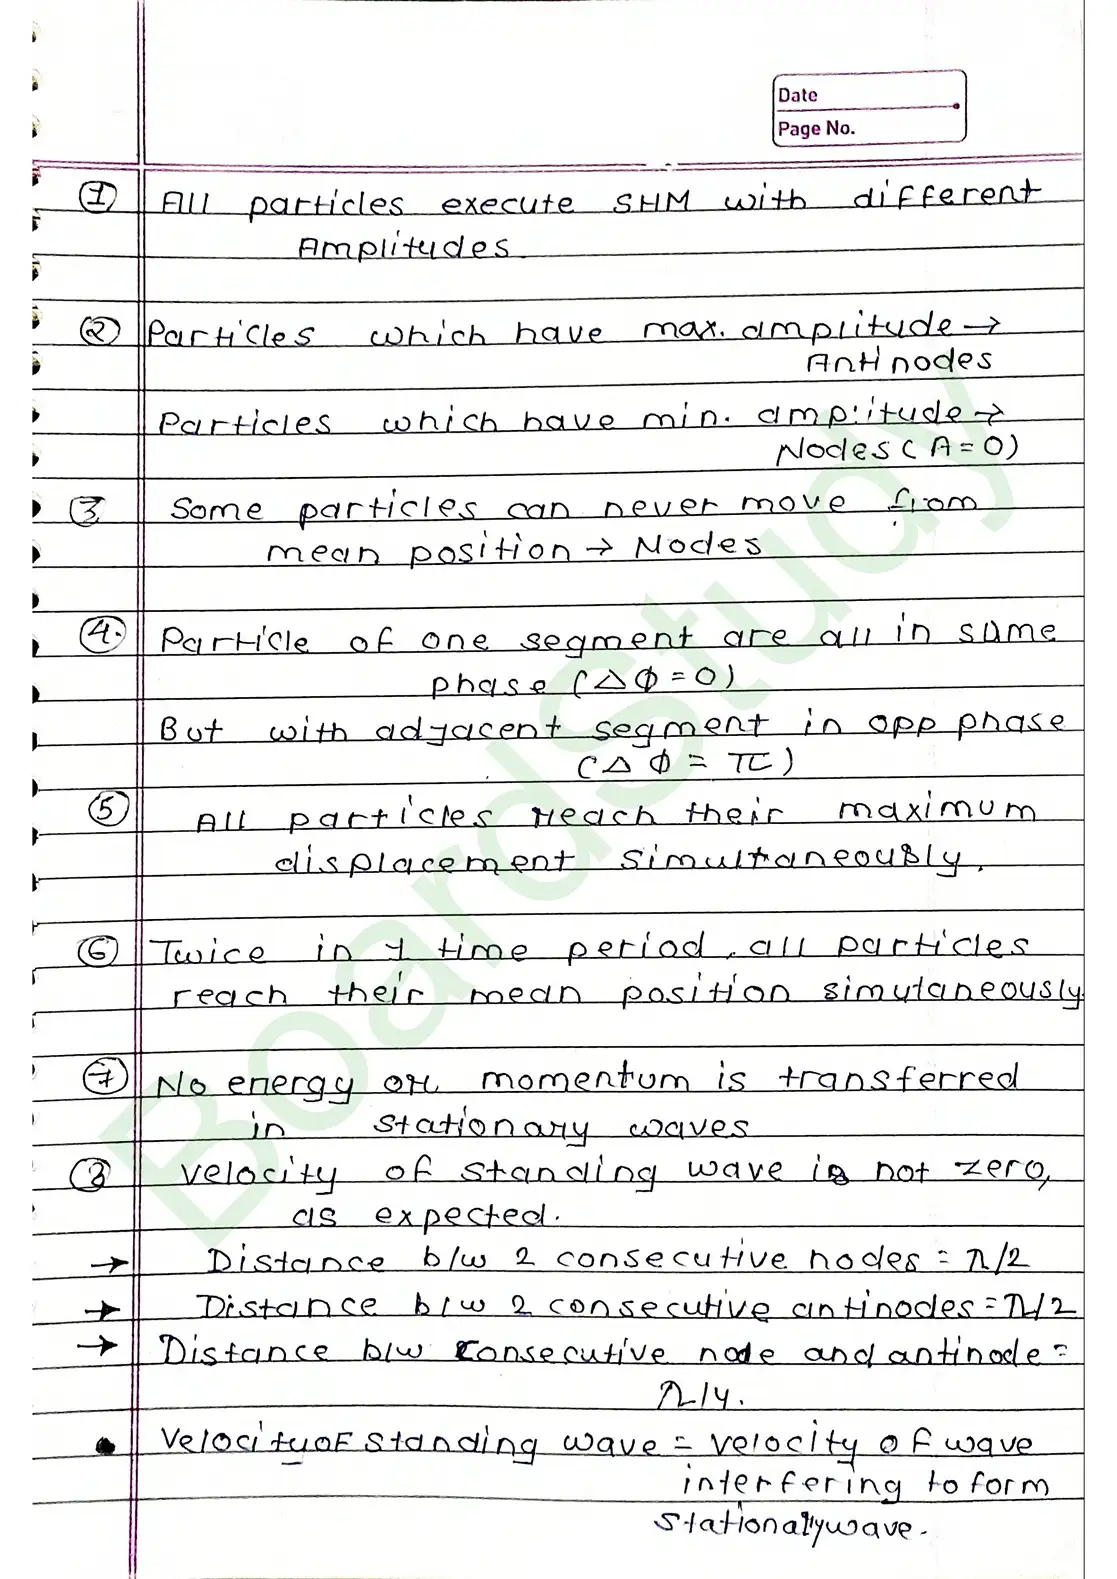 Date
Page No.
① All particles execute SHM with different
Amplitudes
② Particles which have max. amplitude →
Antinodes
Particles which have min. amplitude →
Nodes (A=0)
③ Some particles can never move from
mean position → Nodes
④. Particle of one segment are all in same
phase (Δφ=0)
But with adjacent segment in opp phase
(Δφ = π)
⑤ All particles reach their maximum
displacement simultaneously.
⑥ Twice in 1 time period, all particles
reach their mean position simutaneously
⑦ No energy or momentum is transferred
in stationary waves
⑧ velocity of standing wave is not zero,
as expected.
→ Distance b/w 2 consecutive nodes = λ/2
→ Distance b/w 2 consecutive antinodes = λ/2
→ Distance b/w consecutive node and antinode =
λ/4.
• Velocity of standing wave = velocity of wave
interfering to form
stationary wave.
BoardStudy